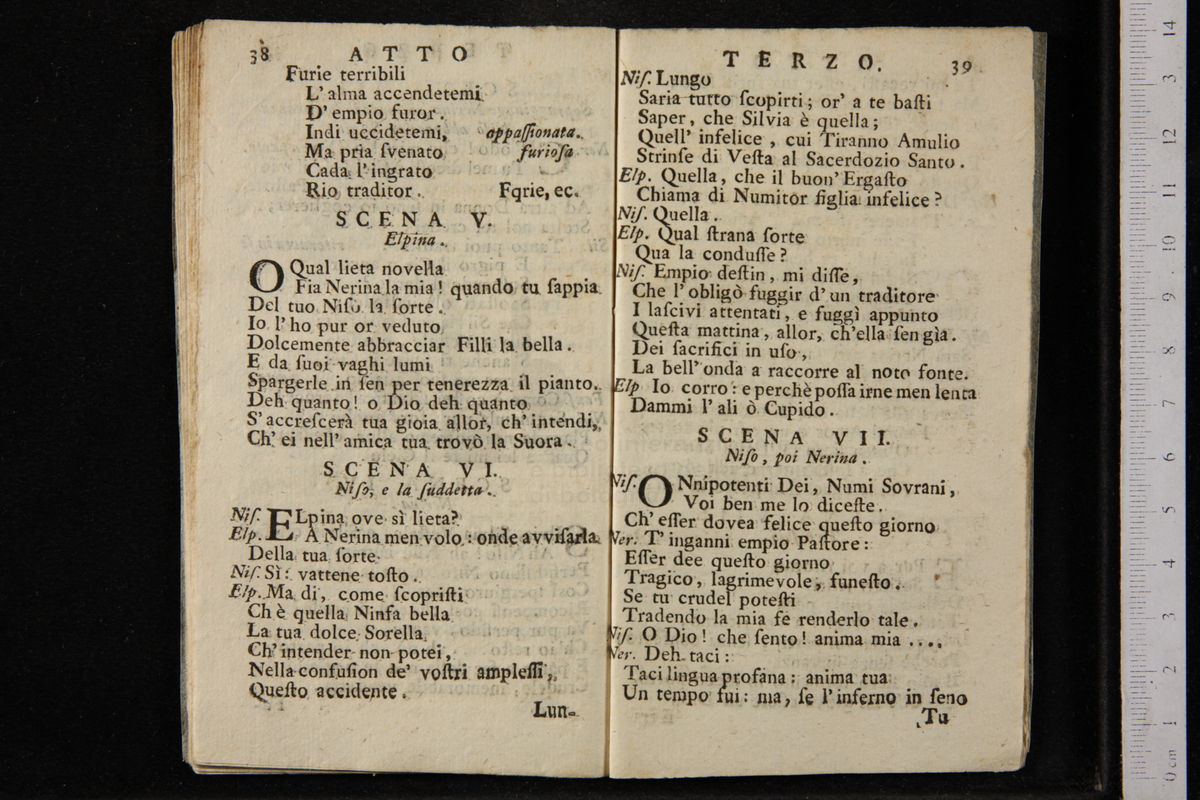 38 ATTO
Furie terribili
L' alma accendetemi
D' empio furor.
Indi uccidetemi, appaſſionata.
Ma pria ſvenato furioſa
Cada l' ingrato
Rio traditor. Fqrie, ec.
SCENA V.
Elpina.
O Qual lieta novella
Fia Nerina la mia! quando tu ſappia
Del tuo Niſo la ſorte.
Io l' ho pur or veduto
Dolcemente abbracciar Filli la bella.
E da ſuoi vaghi lumi
Spargerle in ſen per tenerezza il pianto.
Deh quanto! o Dio deh quanto
S' accreſcerà tua gioia allor, ch' intendi,
Ch' ei nell' amica tua trovò la Suora.
SCENA VI.
Niſo, e la ſuddetta.
Niſ. ELpina ove sì lieta?
Elp. A Nerina men volo: onde avviſarla
Della tua ſorte
Niſ. Sì: vattene toſto.
Elp. Ma di, come ſcopriſti
Ch è quella Ninfa bella
La tua dolce Sorella,
Ch' intender non potei,
Nella confuſion de' voſtri ampleſſi,
Queſto accidente.
Lun-
TERZO. 39
Niſ. Lungo
Saria tutto ſcopirti; or' a te baſti
Saper, che Silvia è quella;
Quell' infelice, cui Tiranno Amulio
Strinſe di Veſta al Sacerdozio Santo.
Elp. Quella, che il buon' Ergaſto
Chiama di Numitor figlia infelice?
Niſ. Quella.
Elp. Qual ſtrana ſorte
Qua la conduſſe?
Niſ. Empio deſtin, mi diſſe,
Che l' obligò fuggir d' un traditore
I laſcivi attentati, e fuggì appunto
Queſta mattina, allor, ch'ella ſen gìa.
Dei ſacrifici in uſo,
La bell' onda a raccorre al noto fonte.
Elp Io corro: e perchè poſſa irne men lenta
Dammi l' ali ò Cupido.
SCENA VII.
Niſo, poi Nerina.
Niſ. ONnipotenti Dei, Numi Sovrani,
Voi ben me lo diceſte.
Ch' eſſer dovea felice queſto giorno
Ner. T' inganni empio Paſtore:
Eſſer dee queſto giorno
Tragico, lagrimevole, funeſto.
Se tu crudel poteſti
Tradendo la mia fe renderlo tale.
Niſ. O Dio! che ſento! anima mia ....
Ner. Deh taci:
Taci lingua profana: anima tua
Un tempo fui: ma, ſe l' inferno in ſeno
Tu
0 cm 1 2 3 4 5 6 7 8 9 10 11 12 3 14